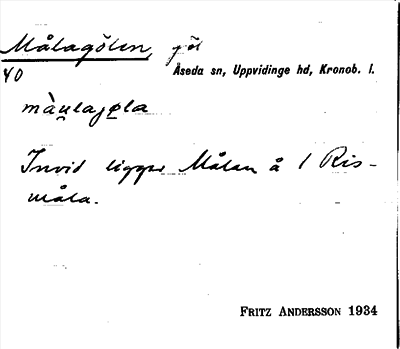 Målagölen, göl
Åseda sn, Uppvidinge hd, Kronob. l.
40
màu̯lajọla
Invid ligger Målan å 1 Ris-
måla.
FRITZ ANDERSSON 1934